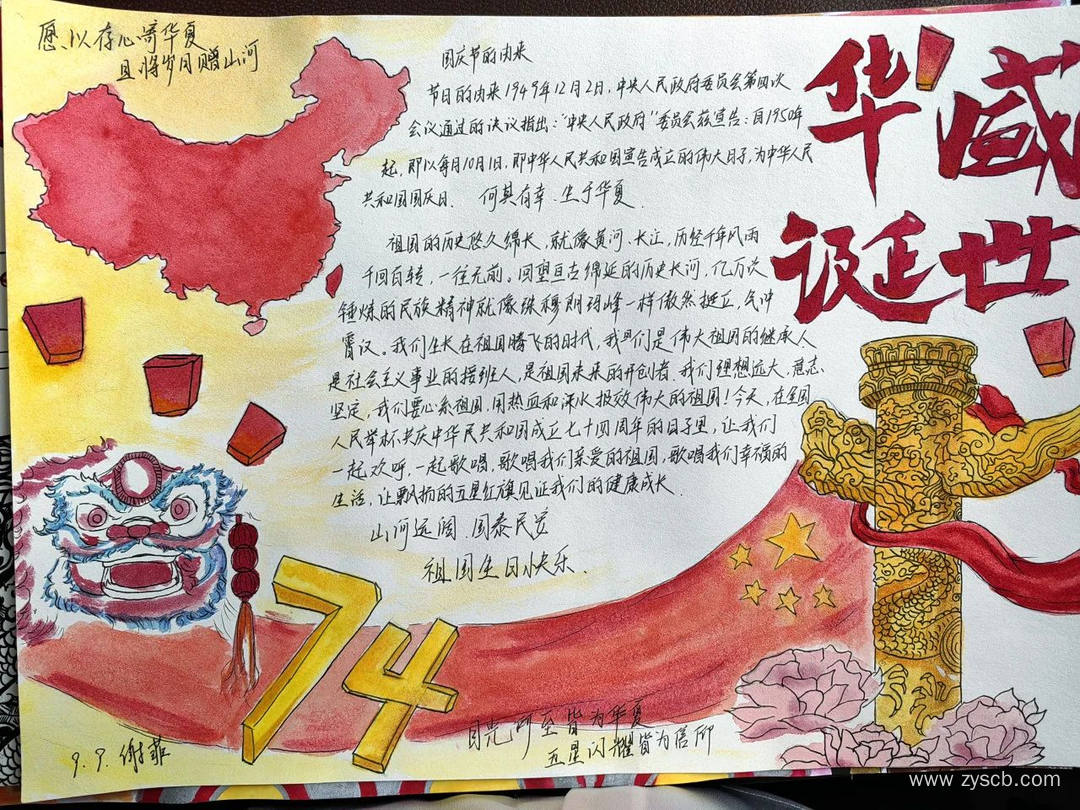 愿以存心寄华夏
且将岁月赠山河
国庆节的由来
节日的由来1949年12月2日,中央人民政府委员会第四次
会议通过的决议指出:"中央人民政府"委员会兹宣告:自1950年
起,即以每月10月1日,即中华人民共和国宣告成立的伟大日子,为中华人民
共和国国庆日. 何其有幸.生于华夏.
祖国的历史悠久绵长,就像黄河、长江,历经千年风雨
千回百转,一往无前。回望亘古绵延的历史长河,亿万次
锤炼的民族精神就像珠穆朗玛峰一样傲然挺立,气冲
霄汉。我们生长在祖国腾飞的时代,我们是伟大祖国的继承人
是社会主义事业的接班人,是祖国未来的开创者.我们理想远大,意志
坚定,我们要心系祖国,用热血和汗水报效伟大的祖国!今天,在全国
人民举杯共庆中华民共和国成立七十四周年的日子里,让我们
一起欢呼,一起歌唱,歌唱我们亲爱的祖国,歌唱我们幸福的
生活,让飘扬的五星红旗见证我们的健康成长.
山河远阔.国泰民安
祖国生日快乐.
华盛
诞世
74
目光所至皆为华夏
五星闪耀皆为信仰
9.9.谢菲
www.zyscb.com